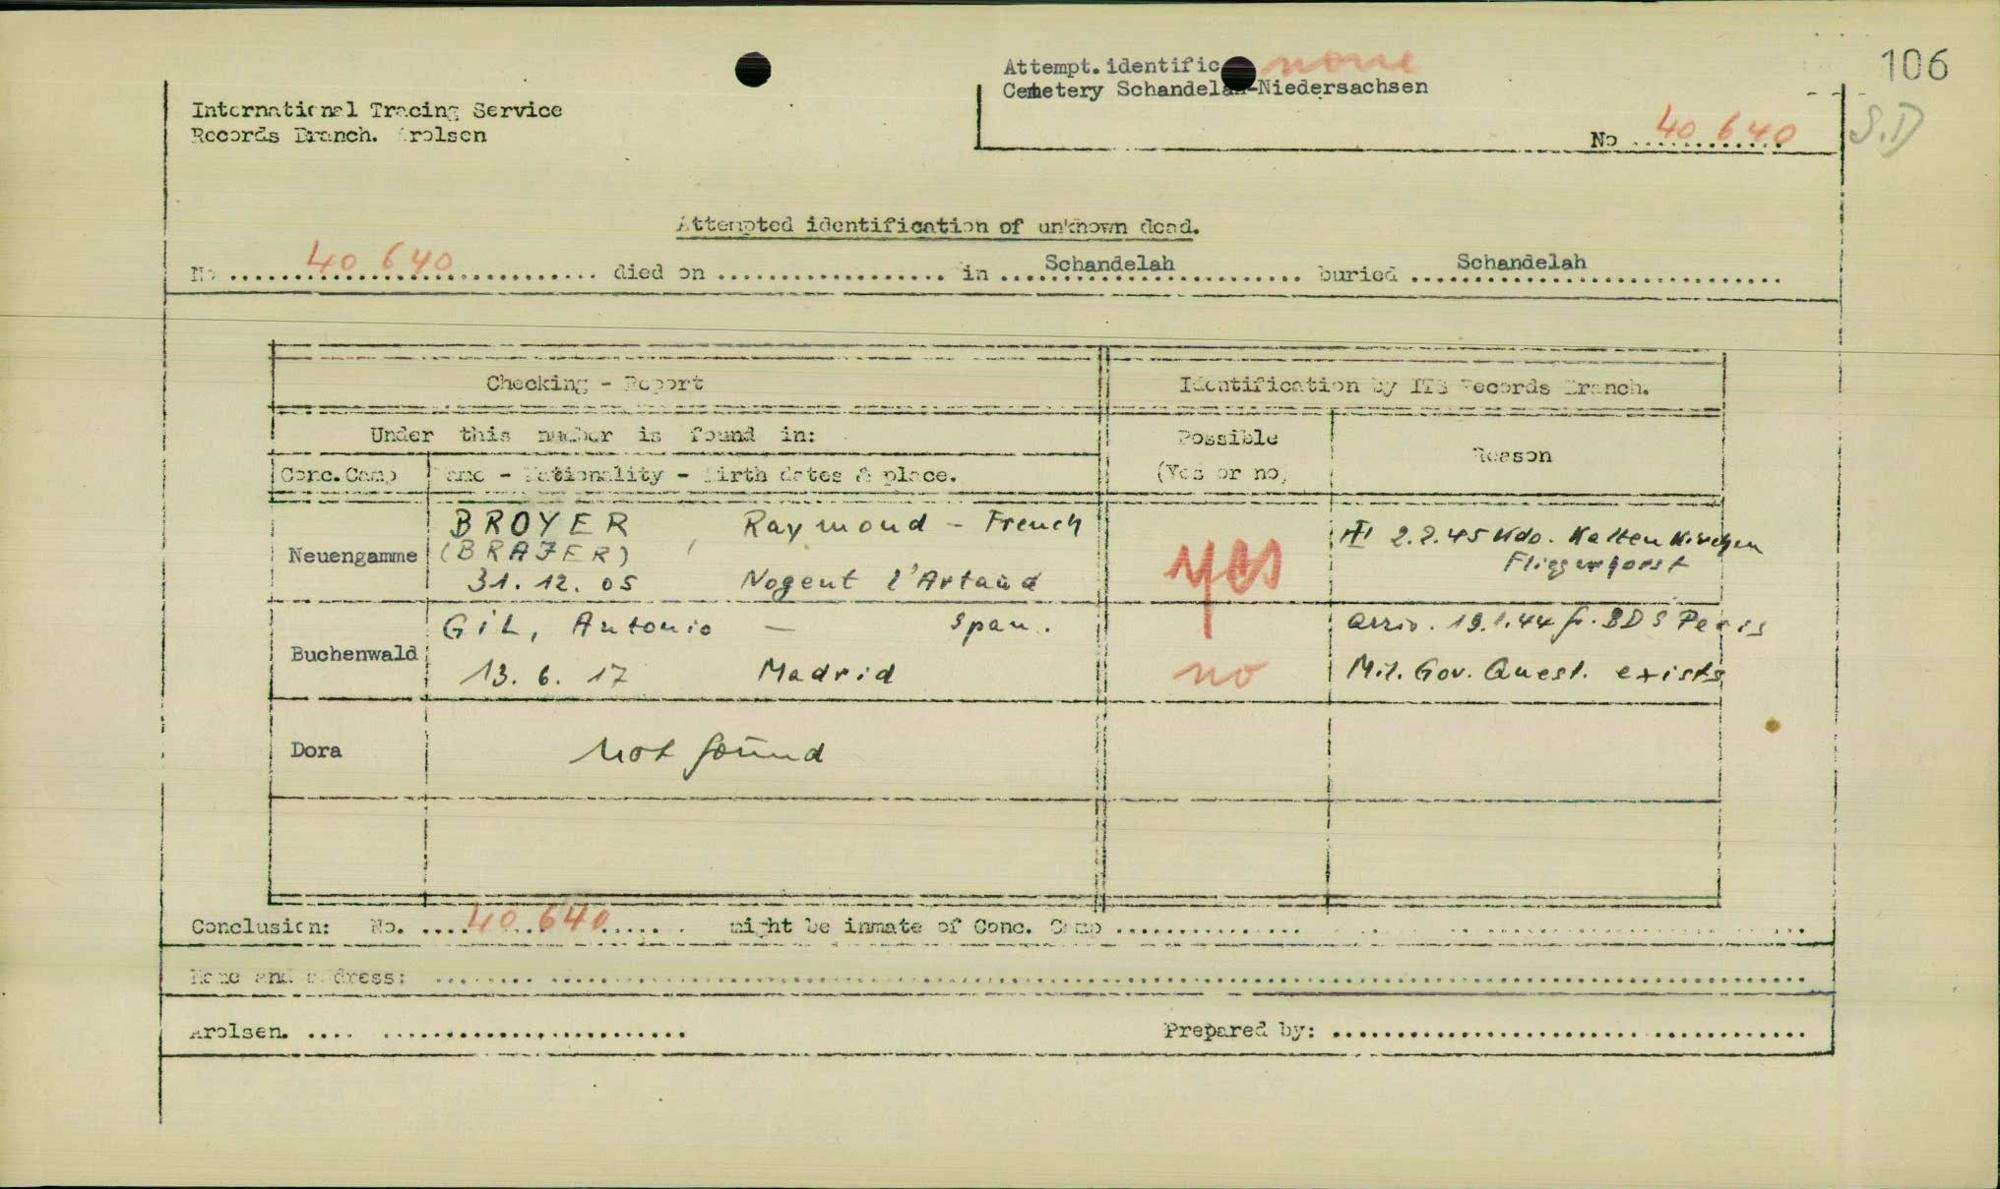 106
Attempt. identific none
Cemetery Schandelah-Niedersachsen
International Tracing Service
Records Branch. Arolsen
No 40 640
S.D
Attempted identification of unknown dead.
No 40 640 died on in Schandelah buried Schandelah
Checking - Report
Identification by ITS Records Branch.
Under this number is found in:
Possible
(Yes or no)
Reason
Conc.Camp
Name - Nationality - Birth dates & place.
Neuengamme
BROYER, Raymond - French
(BRAJER)
31.12.05 Nogent l'Artaud
yes
2.2.45 Kdo. Kaltenkirchen
Fliegerhorst
Buchenwald
GiL, Antonio - Span.
13.6.17 Madrid
no
arriv. 19.1.44 fr. BDS Paris
Mil. Gov. Quest. exists
Dora
not found
Conclusion: No. 40 640 might be inmate of Conc. Camp
Name and address:
Arolsen.
Prepared by: